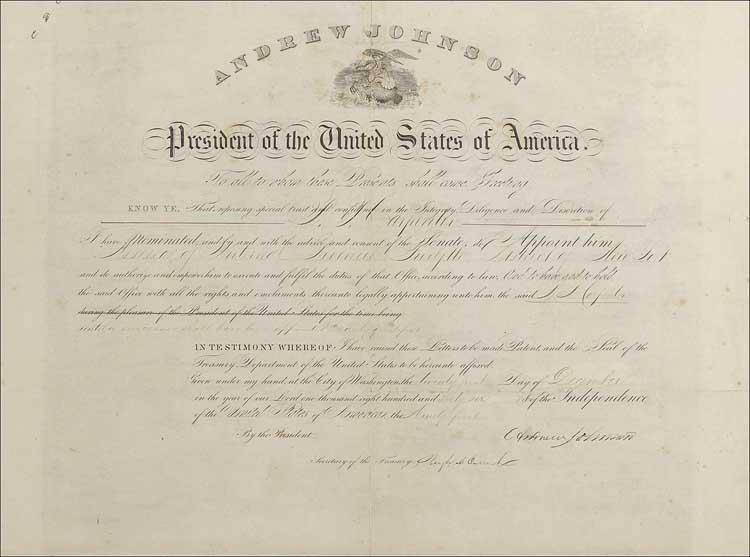 ANDREW JOHNSON
President of the United States of America.
To all to whom these Presents shall come Greeting
KNOW YE, That reposing special trust and confidence in the Integrity, Diligence and Discretion of
I have Nominated, and by and with the advice and consent of the Senate, do Appoint him
Assessor of Internal Revenue District of New York
and do authorize and empower him to execute and fulfil the duties of that Office, according to law; And to have and to hold
the said Office with all the rights and emoluments thereunto legally appertaining unto him, the said
during the pleasure of the President of the United States for the time being
IN TESTIMONY WHEREOF, I have caused these Letters to be made Patent, and the Seal of the
Treasury Department of the United States to be hereunto affixed.
Given under my hand, at the City of Washington, the Day of December
in the year of our Lord one thousand eight hundred and of the Independence
of the United States of America, the Ninety first
By the President Andrew Johnson
Secretary of the Treasury